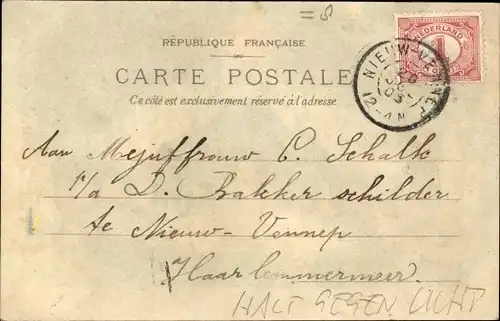 = 8
RÉPUBLIQUE FRANÇAISE
CARTE POSTALE
Ce côté est exclusivement réservé à l'adresse
NEDERLAND
1
NIEUW-VENNEP
03
12-
Aan Mejuffrouw C. Schalk
p/a D. Bakker schilder
te Nieuw-Vennep
Haarlemmermeer
HALT GEGEN LICHT